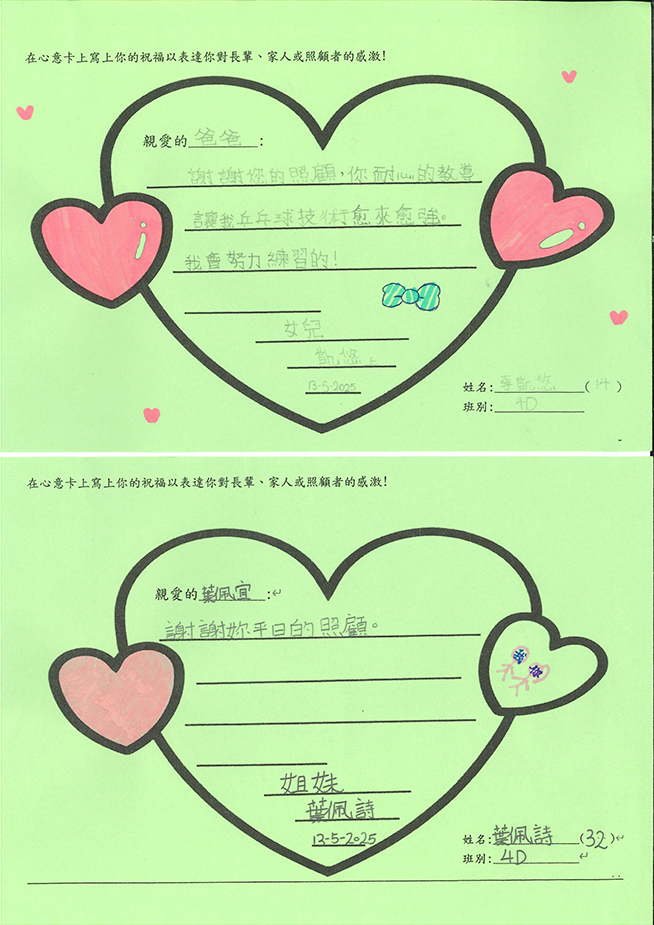 在心意卡上寫上你的祝福以表達你對長輩、家人或照顧者的感激!
親愛的爸爸:
謝謝您的照顧,你耐心的教導
讓我乒乓球技術愈來愈強。
我會努力練習的!
女兒
凱悠上
13-5-2025
姓名:李凱悠(14)
班別:4D
在心意卡上寫上你的祝福以表達你對長輩、家人或照顧者的感激!
親愛的葉佩宜:
謝謝妳平日的照顧。
姐妹
葉佩詩
13-5-2025
姓名:葉佩詩(32)
班別:4D